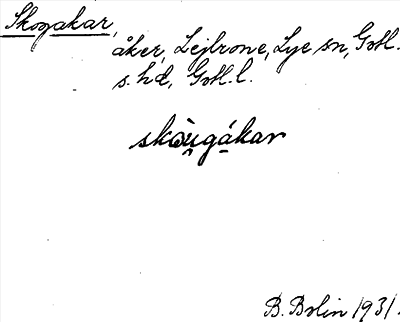 Skogakar,
åker, Lejlrone, Lye sn, Gotl.
s. hd, Gotl. l.
skòu̯gákar
B. Bolin 1931.